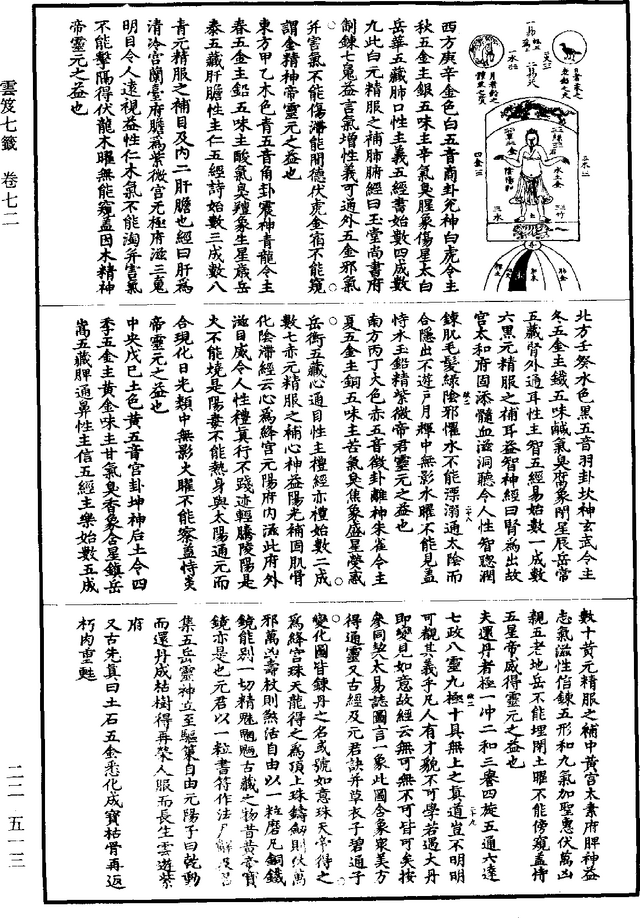 雲笈七籤 卷七二
西方庚辛金色白五音商卦兌神白虎令主
秋五金主銀五味主辛氣臭腥象傷星太白
岳華五藏肺口性主義五經書始數四成數
九此白元精服之補肺腑經曰玉堂尚書府
制鍊七鬼益言氣增性義可通外五金邪氣
并害氣不能傷滯能開德伏虎金宿不能窺
謂金精神帝靈元之益也
東方甲乙木色青五音角卦震神青龍令主
春五金主鉛五味主酸氣臭羶象生星歲岳
泰五藏肝膽性主仁五經詩始數三成數八
青元精服之補目及內二肝膽也經曰肝為
清泠宮蘭臺府膽為紫微宮无極府滋三䰟
明目令人遠視益性仁木氣不能淘并害氣
不能擊陽得伏龍木曜無能窺蓋因木精神
帝靈元之益也
北方壬癸水色黑五音羽卦坎神玄武令主
冬五金主鐵五味鹹氣臭腐象閉星辰岳常
五藏腎外通耳性主智五經易始數一成數
六黑元精服之補耳益智神經曰腎為出故
宮太和府固添髓血滋洞聽令人性智聰潤
鍊肌毛髮綠陰邪懼水不能漂溺通太陰而
合隱出不遊戶月輝中無影水曜不能見蓋
恃水玉鉛精紫微帝君靈元之益也
南方丙丁火色赤五音徵卦離神朱雀令主
夏五金主銅五味主苦氣臭焦象盛星熒惑
岳衡五藏心通目性主禮經亦禮始數二成
數七赤元精服之補心神益陽光補固肌骨
化陰滯經云心為絳宮元陽府內滋此府外
滋目威令人性禮真行不踐迹輕騰陵陽是
火不能燒是陽毒不能熱身與太陽通元而
合現化日光類中無影火曜不能察蓋恃炎
帝靈元之益也
中央戊巳土色黃五音宮卦坤神后土令四
季五金主黃金味主甘氣臭香象含星鎮岳
嵩五藏脾通鼻性主信五經主樂始數五成
數十黃元精服之補中黃宮太素府脾神益
志氣滋性信鍊五形和九氣加聖惠伏萬凶
親五老地岳不能埋閉土曜不能傍窺蓋恃
五星帝威得靈元之益也
夫還丹者極一冲二和三審四旋五通六達
七政八靈九極十具無上之真道豈不明明
可觀其義乎凡人有才貌不可學若遇大丹
即變見如意故經云無可無不可皆可矣按
參同契太易誌圖言一象此圖含象眾美方
得通靈又古經及元君訣并草衣子碧通子
變化圖皆鍊丹之名或號如意珠天帝得之
為絳宮珠天龍得之為頂上珠鑄劒則伏萬
邪萬凶壽杖則煞活自由以一粒磨凡銅錢
鏡能別一切精魅魍魎古藏之物昔黃帝寶
鏡亦是也元君以一粒書符作法
集五岳靈神立至驅策自由元陽子曰乾動
而還丹成枯樹得再榮人服而長生雲遊紫
府
又古先真曰土石五金悉化成寶枯骨再返
朽肉重甦
二二-五一三